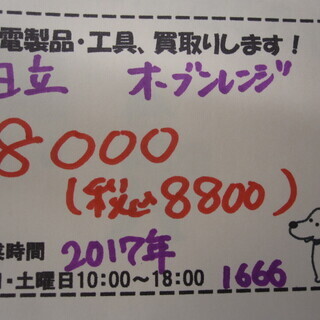 電製品・工具、買取りします！
日立 オーブンレンジ
8000
(税込8800)
業時間 2017年
・土曜日10:00～18:00 1666